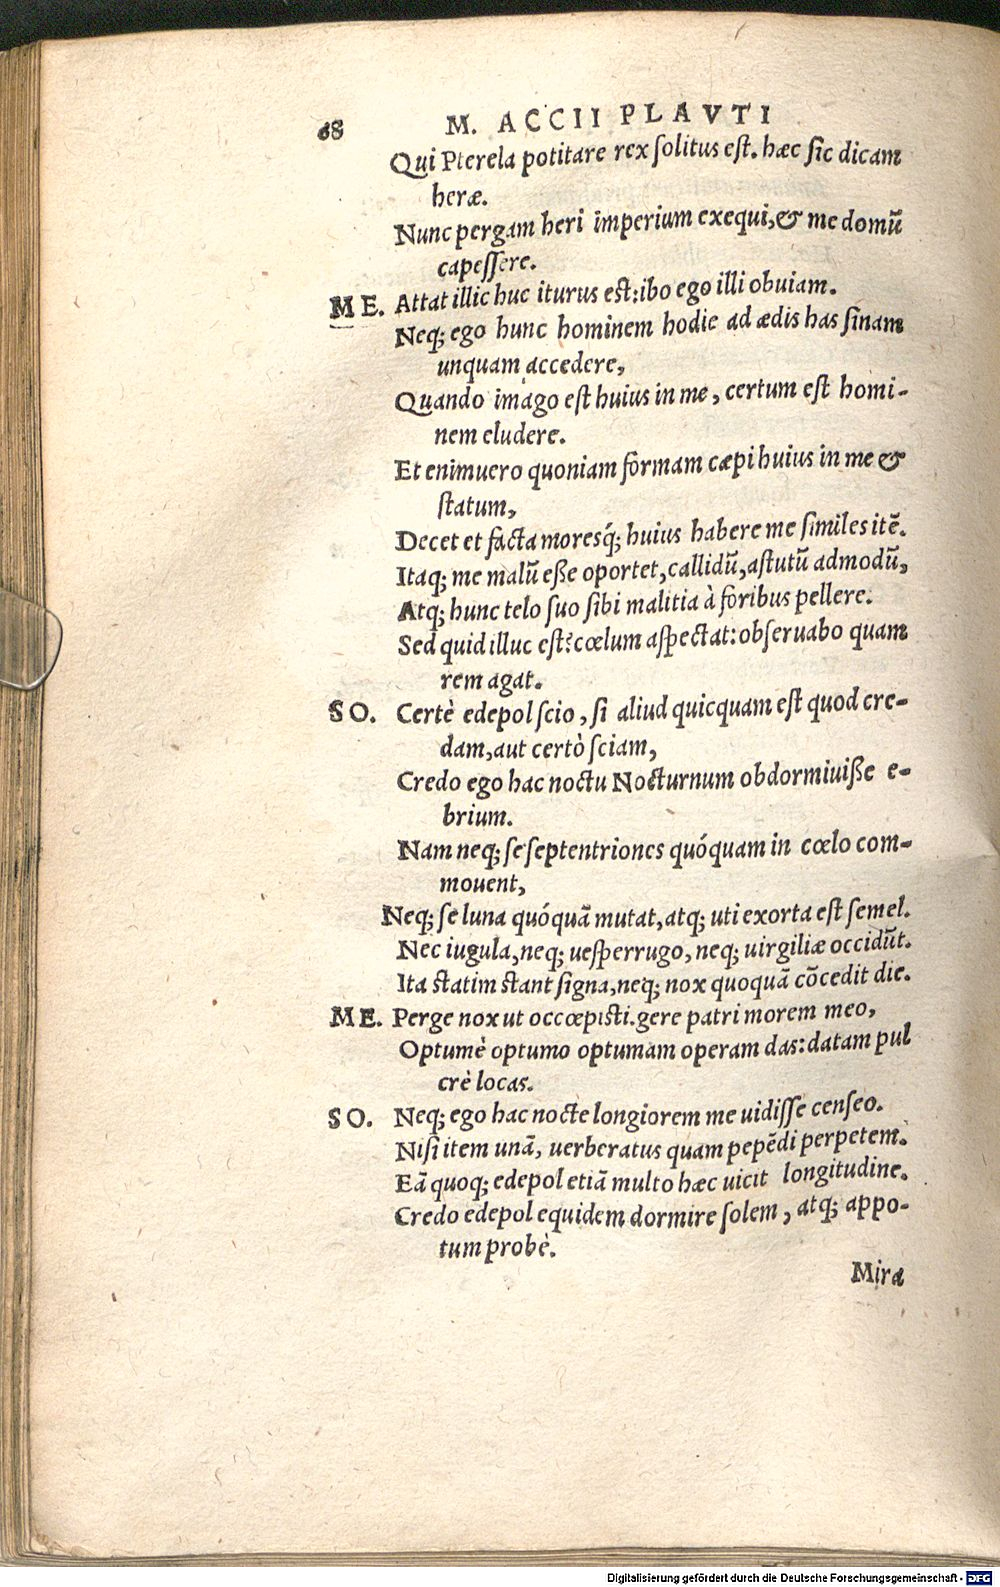 68 M. ACCII PLAVTI
Qui Pterela potitare rex ſolitus eſt. hæc ſic dicam
heræ.
Nunc pergam heri imperium exequi,& me domū
capeſſere.
ME. Attat illic huc iturus est:ibo ego illi obuiam.
Neq; ego hunc hominem hodie ad ædis has ſinam
unquam accedere,
Quando imago eſt huius in me, certum eſt homi-
nem eludere.
Et enimuero quoniam formam cæpi huius in me &
ſtatum,
Decet et facta moresq́; huius habere me ſimiles itē.
Itaq; me malū eße oportet,callidū,aſtutū admodū,
Atq; hunc telo ſuo ſibi malitia à foribus pellere.
Sed quid illuc eſt?cœlum aſpectat:obſeruabo quam
rem agat.
SO. Certè edepol ſcio, ſi aliud quicquam eſt quod cre-
dam,aut certò ſciam,
Credo ego hac noctu Nocturnum obdormiuiße e-
brium.
Nam neq; ſe ſeptentriones quóquam in cœlo com-
mouent,
Neq; ſe luna quóquā mutat,atq; uti exorta eſt ſemel.
Nec iugula,neq; ueſperrugo,neq; uirgiliæ occidūt.
Ita ſtatim ſtant ſigna,neq; nox quoquā cōcedit die.
ME. Perge nox ut occœpiſti.gere patri morem meo,
Optumè optumo optumam operam das:datam pul
crè locas.
SO. Neq; ego hac nocte longiorem me uidiſſe cenſeo.
Niſi item unā, uerberatus quam pepēdi perpetem.
Eā quoq; edepol etiā multo hæc uicit longitudine.
Credo edepol equidem dormire ſolem, atq; appo-
tum probè.
Mira
Digitalisierung gefördert durch die Deutsche Forschungsgemeinschaft - DFG